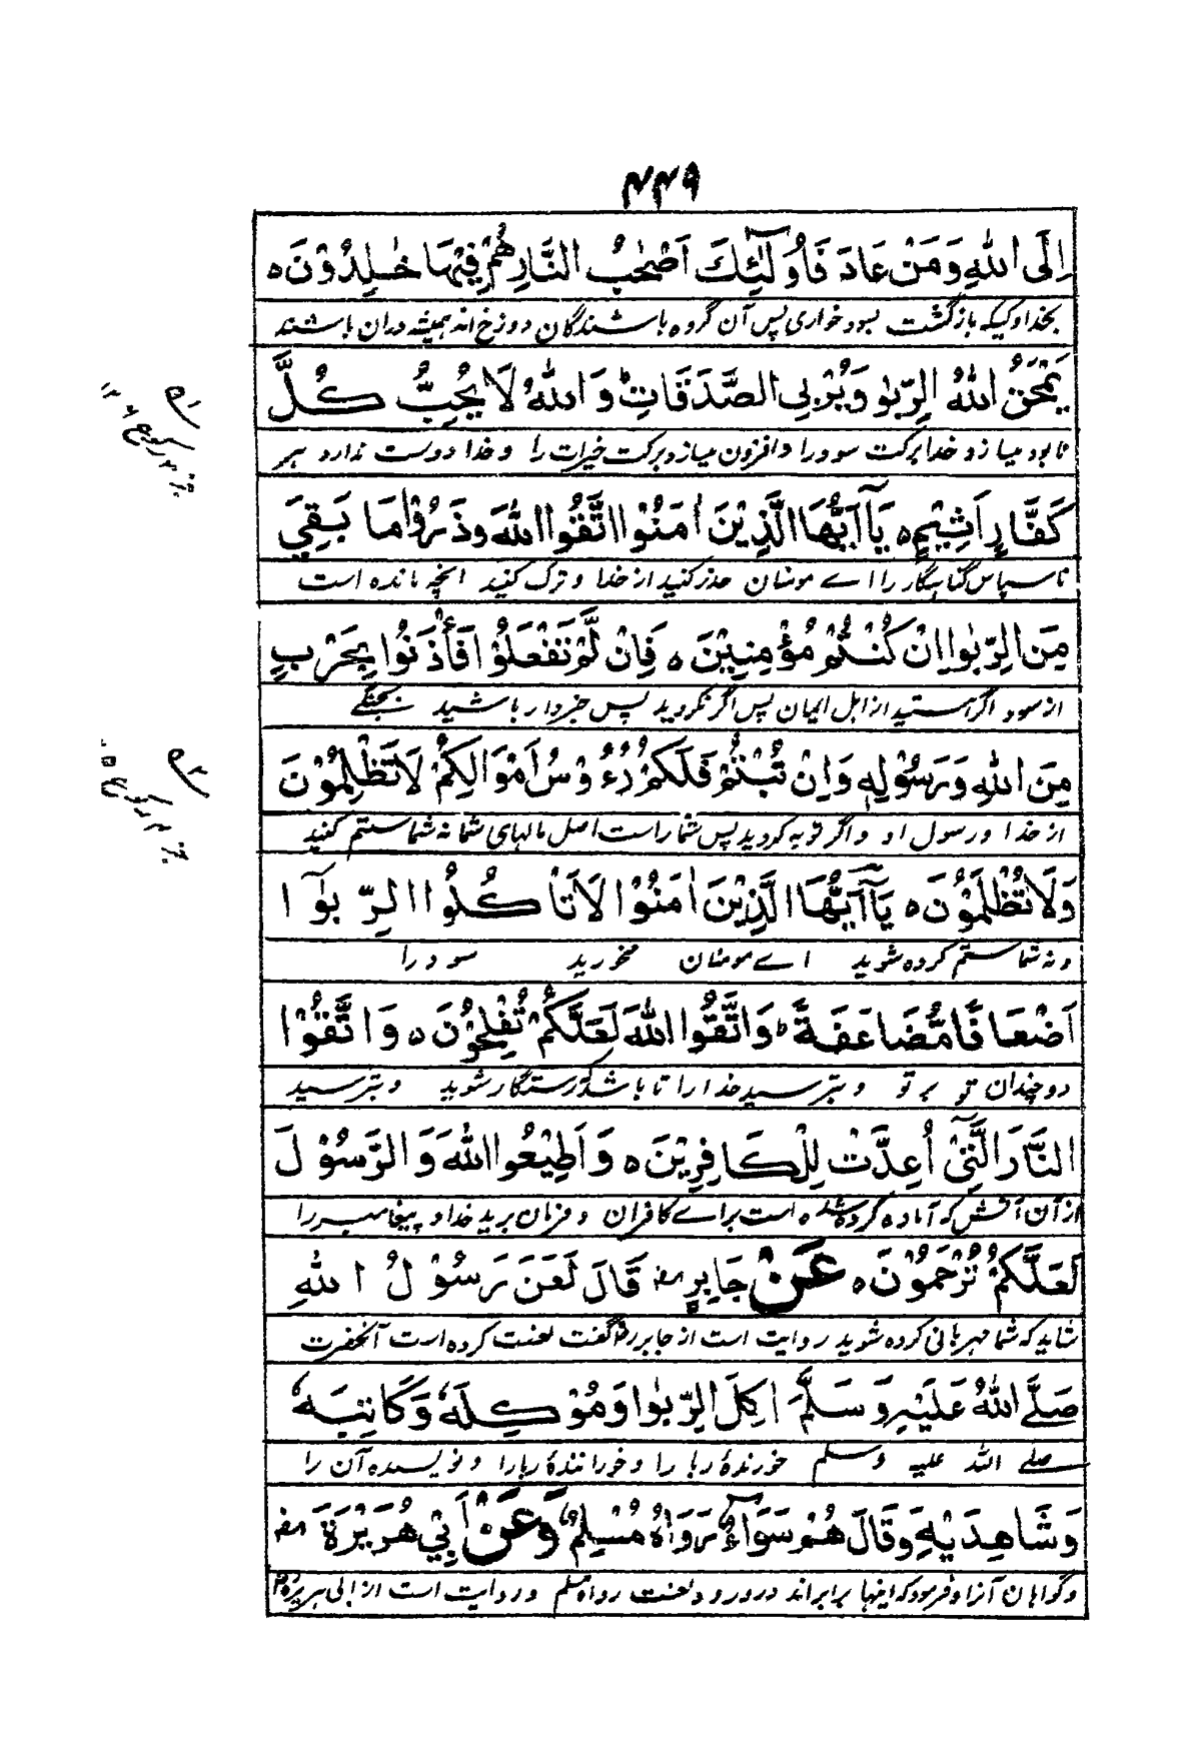 ۴۴۹
اِلَی اللهِ وَمَنْ عَادَ فَاُولٰٓئِكَ اَصْحٰبُ النَّارِ هُمْ فِیْهَا خٰلِدُوْنَ ه
بخدا و کسیکه بازگشت بسود خواری پس آن گروه باشندگان دوزخ اند همیشه دران باشند
یَمْحَقُ اللهُ الرِّبٰو وَیُرْبِی الصَّدَقَاتِ ط وَاللهُ لَا یُحِبُّ كُلَّ
نابود میسازد خدا برکت سود را و افزون میسازد برکت خیرات را و خدا دوست ندارد هر
كَفَّارٍ اَثِیْمٍ ه یَآ اَیُّهَا الَّذِیْنَ اٰمَنُوا اتَّقُوا اللهَ وَذَرُوْا مَا بَقِیَ
ناسپاس گناهگار را اے مومنان حذر کنید از خدا و ترک کنید انچه مانده است
مِنَ الرِّبٰوا اِنْ كُنْتُمْ مُؤْمِنِیْنَ ه فَاِنْ لَّمْ تَفْعَلُوْا فَأْذَنُوا بِحَرْبٍ
از سود اگر هستید از اهل ایمان پس اگر نکردید پس خبردار باشید بجنگے
مِنَ اللهِ وَرَسُوْلِهٖ وَاِنْ تُبْتُمْ فَلَكُمْ رُءُوْسُ اَمْوَالِكُمْ لَا تَظْلِمُوْنَ
از خدا و رسول او و اگر توبه کردید پس شما راست اصل مالهای شما نه شما ستم کنید
وَلَا تُظْلَمُوْنَ ه یَآ اَیُّهَا الَّذِیْنَ اٰمَنُوْا لَا تَأْكُلُوا الرِّبٰوٓا
و نه شما ستم کرده شوید اے مومنان مخورید سود را
اَضْعَافًا مُّضَاعَفَةً ط وَاتَّقُوا اللهَ لَعَلَّكُمْ تُفْلِحُوْنَ ه وَاتَّقُوْا
دوچندان تو بر تو و بترسید خدا را تا باشد که رستگار شوید و بترسید
النَّارَ الَّتِیْٓ اُعِدَّتْ لِلْكَافِرِیْنَ ه وَاَطِیْعُوا اللهَ وَالرَّسُوْلَ
از آن آتش که آماده کرده شده است براے کافران و فرمان برید خدا و پیغامبر را
لَعَلَّكُمْ تُرْحَمُوْنَ ه عَنْ جَابِرٍ رض قَالَ لَعَنَ رَسُوْلُ اللهِ
شاید که شما مهربانی کرده شوید روایت است از جابر رض گفت لعنت کرده است آنحضرت
صَلَّے اللهُ عَلَیْهِ وَسَلَّمَ اٰكِلَ الرِّبٰوا وَمُوْكِلَهٗ وَكَاتِبَهٗ
صلے الله علیه وسلم خورندهٔ ربا را و خورانندهٔ ربا را و نویسنده آن را
وَشَاهِدَیْهِ وَقَالَ هُمْ سَوَآءٌ رَوَاهُ مُسْلِمٌ وَعَنْ اَبِیْ هُرَیْرَةَ رض
و گواهان آنرا و فرمود که اینها برابراند در ورود لعنت رواه مسلم و روایت است از ابی هریره رض